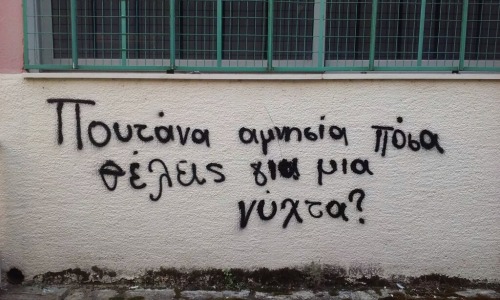 Πουτάνα αμνησία πόσα
θέλεις για μια
νύχτα?